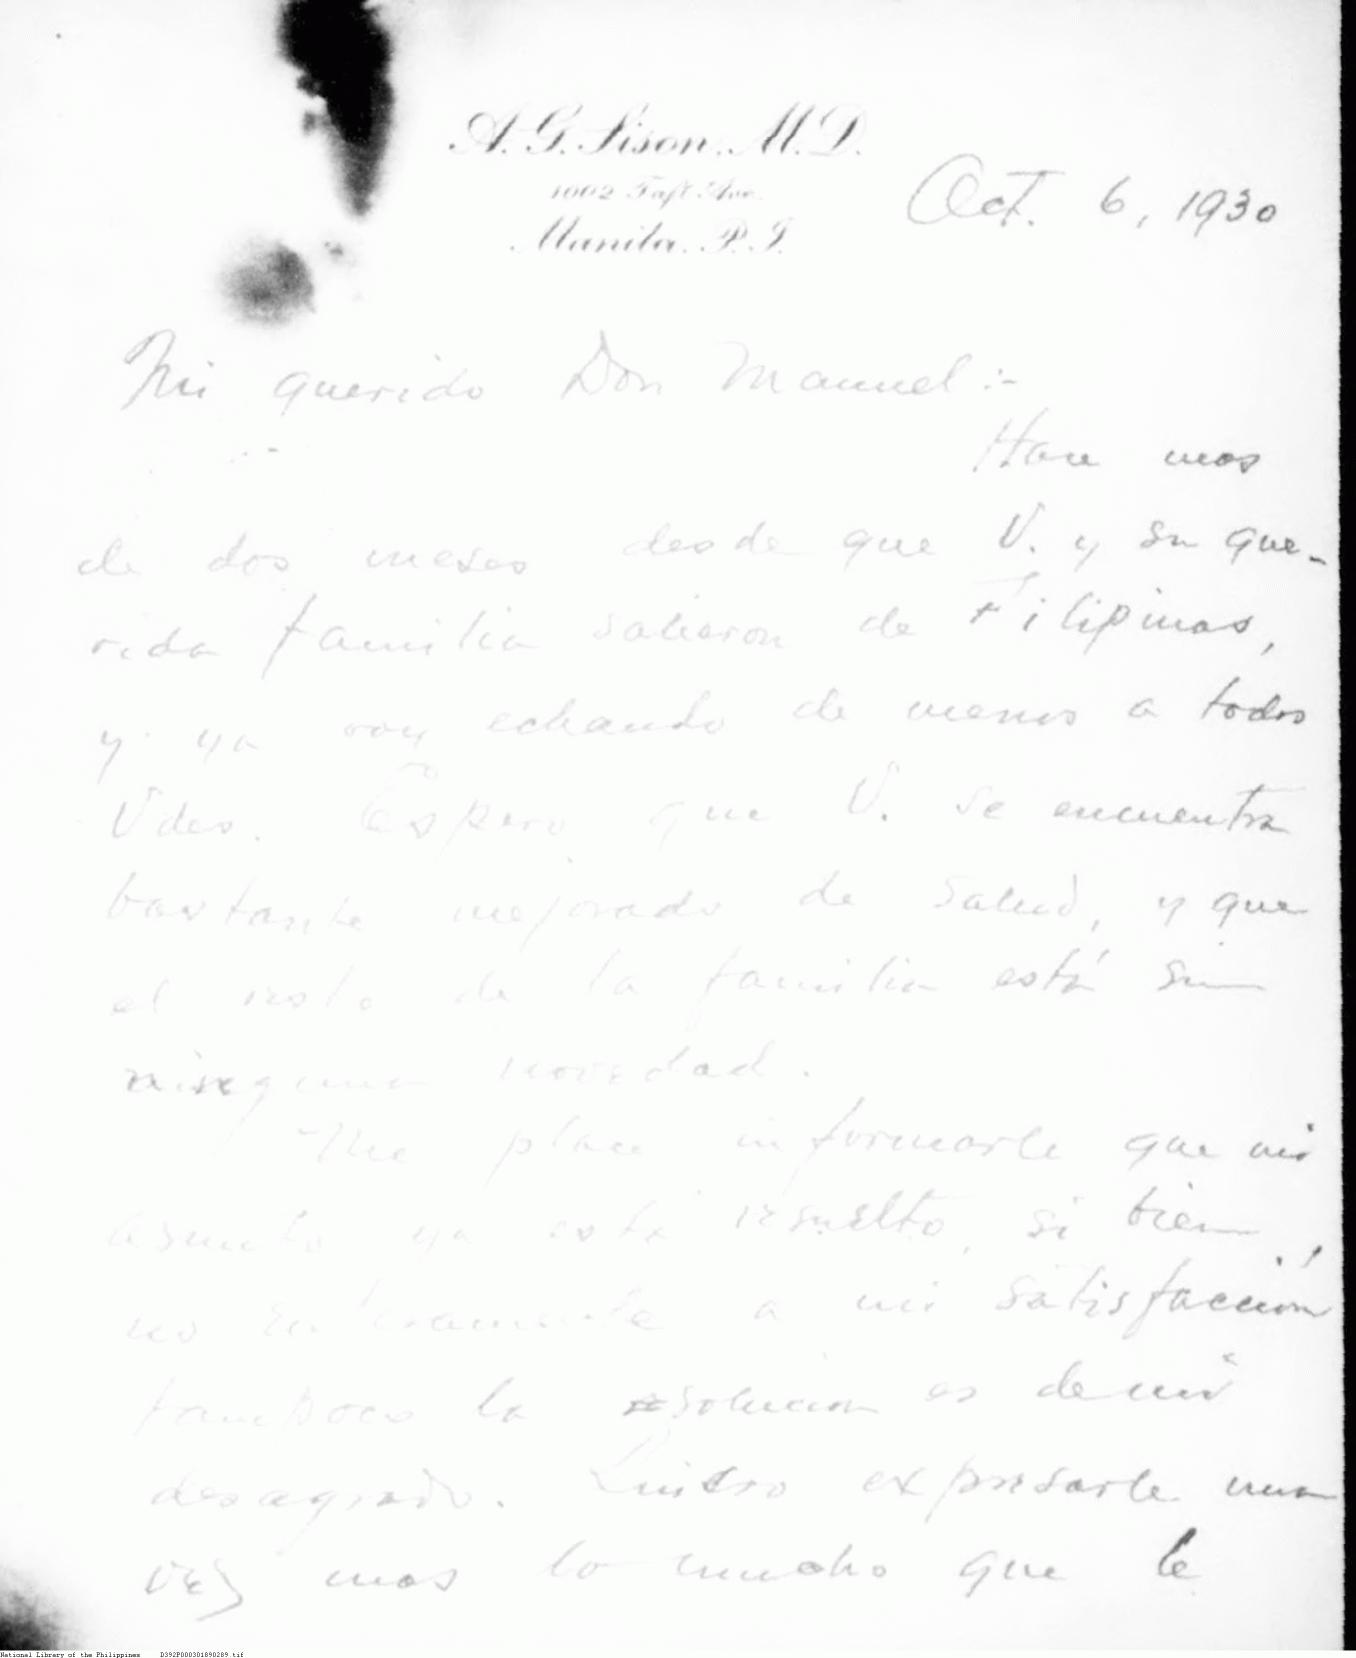 A. G. Sison, M. D.
1002 Taft Ave.
Manila, P. I.
Oct. 6, 1930
Mi querido Don Manuel :-
Hace mas
de dos meses desde que V. y su que-
rida familia salieron de Filipinas,
y ya voy echando de menos a todos
Vdes. Espero que V. se encuentra
bastante mejorado de salud, y que
el resto de la familia está sin
ninguna novedad.
Me place informarle que mi
asunto ya está resuelto, si bien,
no enteramente a mi satisfacción
tampoco la solucion es de mi
desagrado. Quiero expresarle una
vez mas lo mucho que le
National Library of the Philippines D392P000301890289.tif